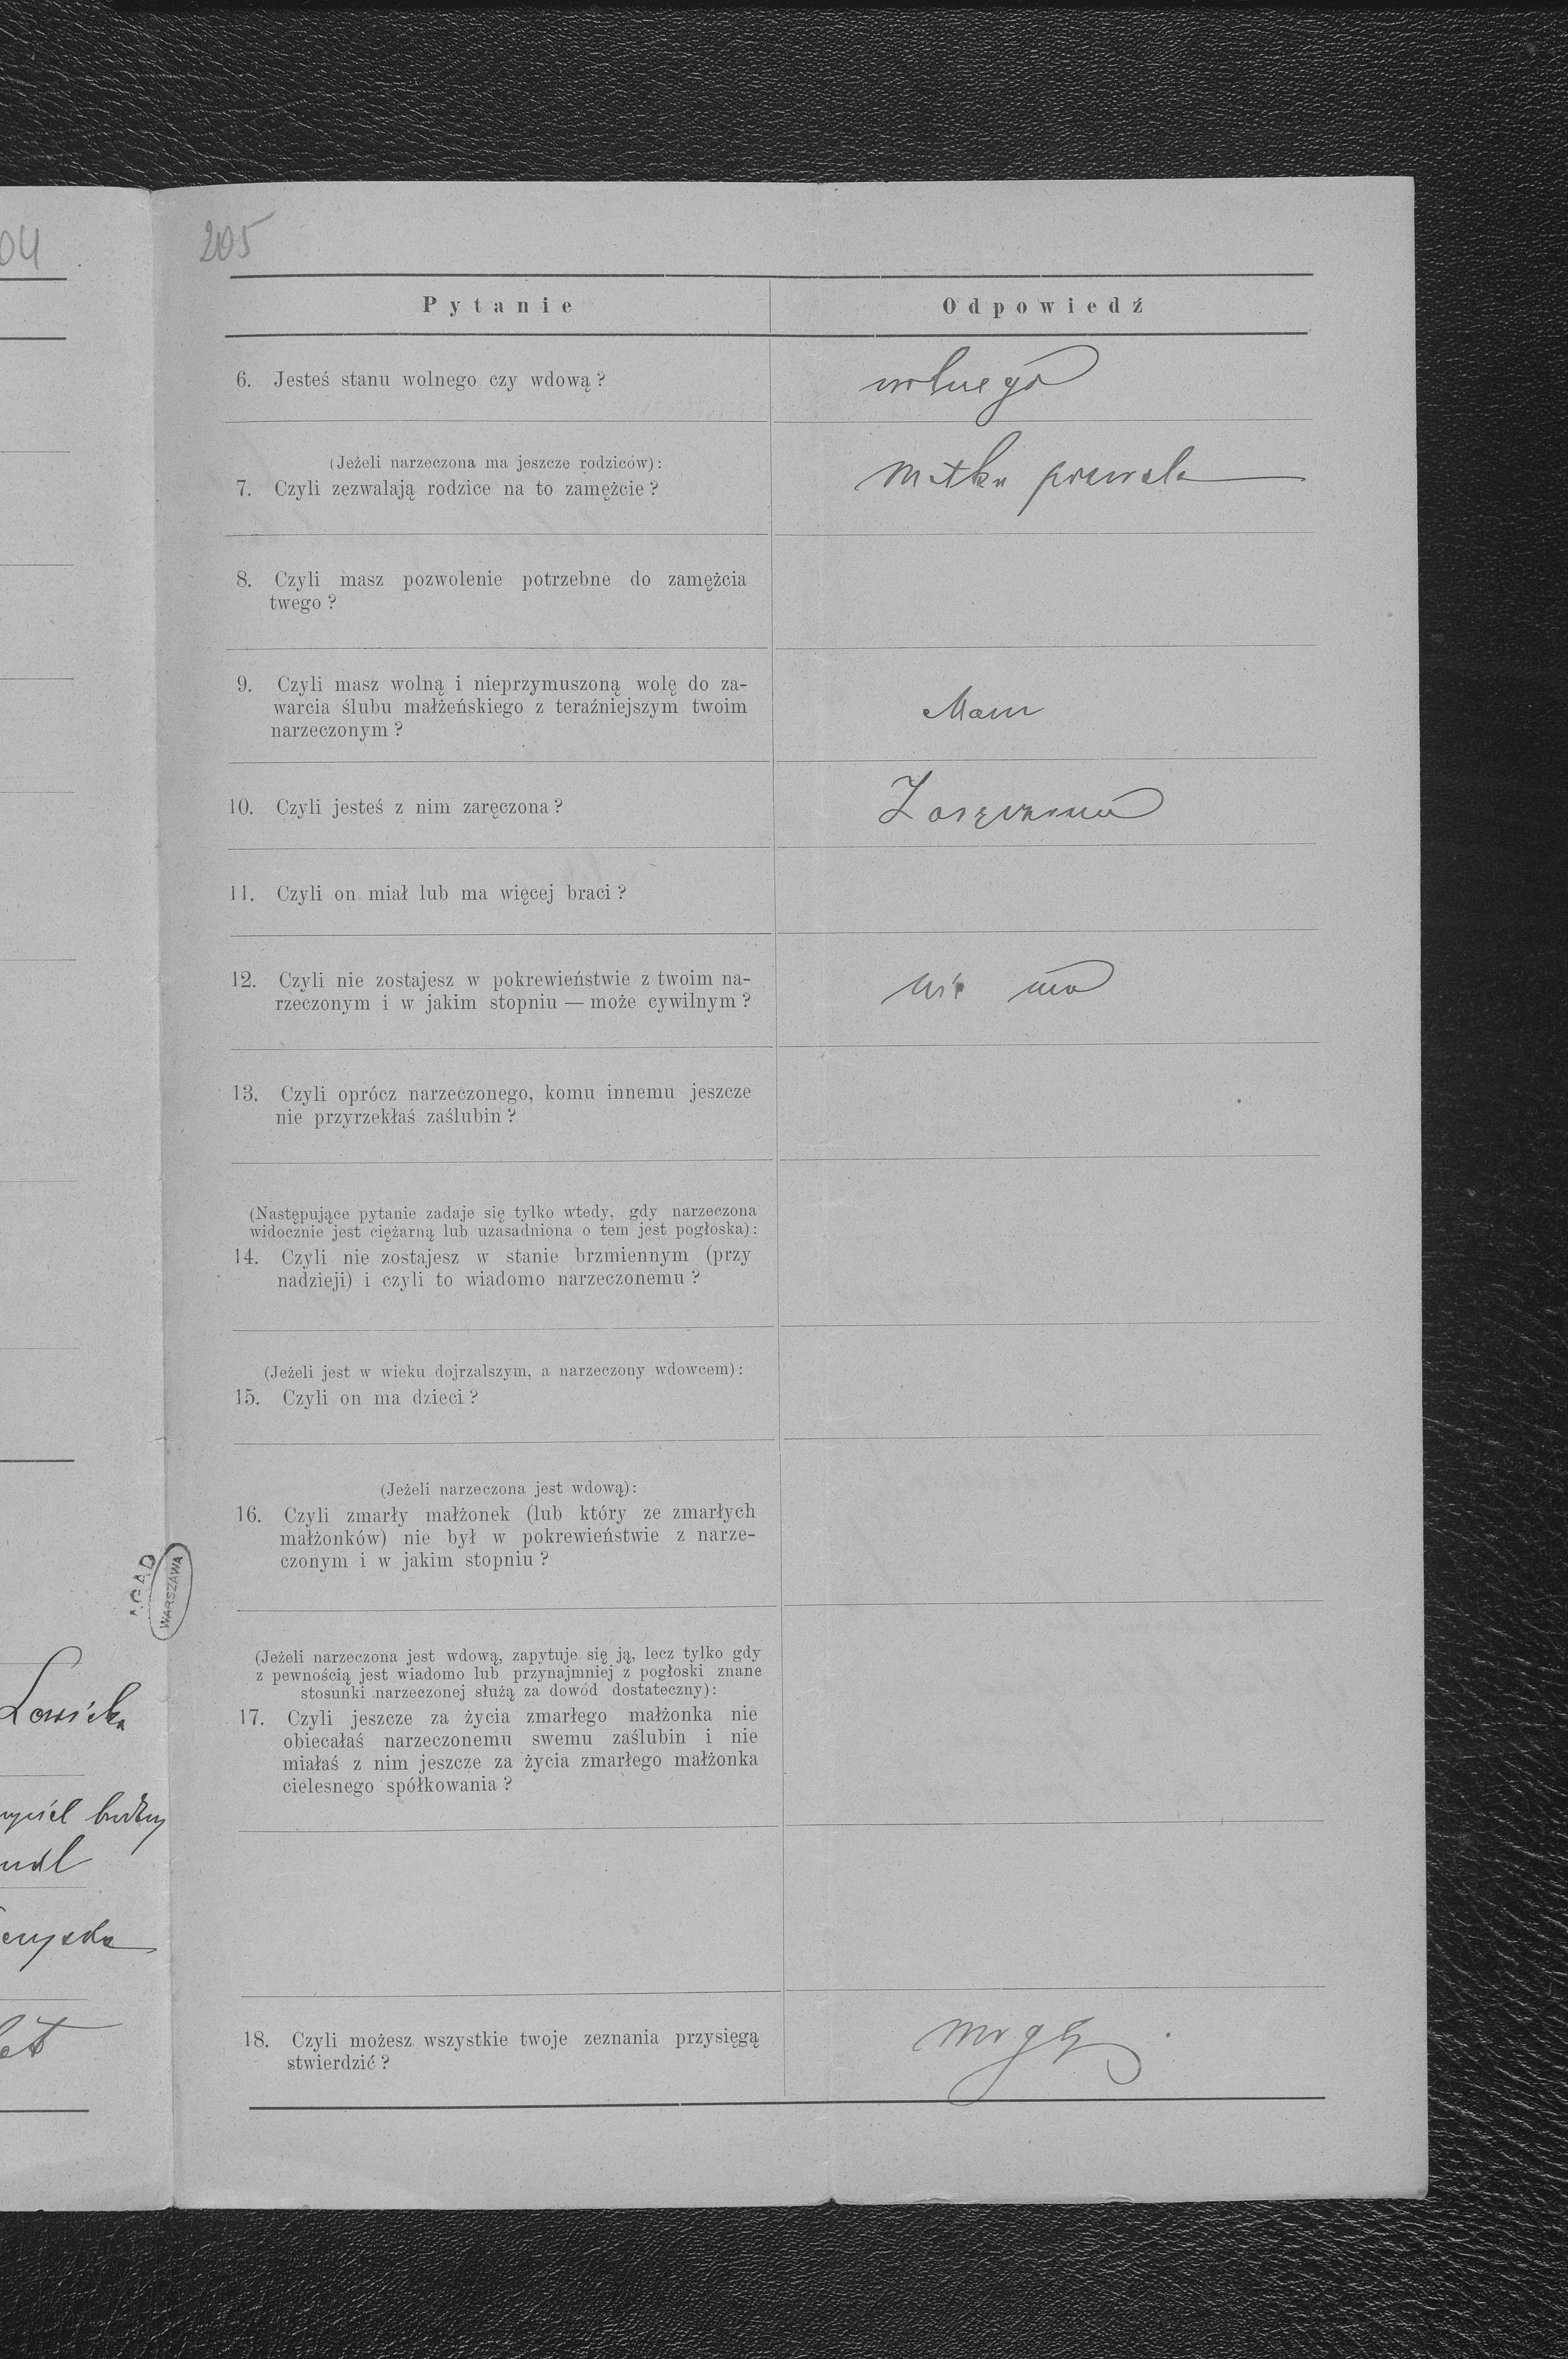 04
205
Pytanie Odpowiedź
6. Jesteś stanu wolnego czy wdową? wolnego
(Jeżeli narzeczona ma jeszcze rodziców):
7. Czyli zezwalają rodzice na to zamężcie? Matka pozwala
8. Czyli masz pozwolenie potrzebne do zamężcia
twego?
9. Czyli masz wolną i nieprzymuszoną wolę do za-
warcia ślubu małżeńskiego z teraźniejszym twoim
narzeczonym?
Mam
10. Czyli jesteś z nim zaręczona? Zaręczona
11. Czyli on miał lub ma więcej braci?
12. Czyli nie zostajesz w pokrewieństwie z twoim na-
rzeczonym i w jakim stopniu — może cywilnym?
nie ma
13. Czyli oprócz narzeczonego, komu innemu jeszcze
nie przyrzekłaś zaślubin?
(Następujące pytanie zadaje się tylko wtedy, gdy narzeczona
widocznie jest ciężarną lub uzasadniona o tem jest pogłoska):
14. Czyli nie zostajesz w stanie brzmiennym (przy
nadzieji) i czyli to wiadomo narzeczonemu?
(Jeżeli jest w wieku dojrzalszym, a narzeczony wdowcem):
15. Czyli on ma dzieci?
(Jeżeli narzeczona jest wdową):
16. Czyli zmarły małżonek (lub który ze zmarłych
małżonków) nie był w pokrewieństwie z narze-
czonym i w jakim stopniu?
AGAD
WARSZAWA
(Jeżeli narzeczona jest wdową, zapytuje się ją, lecz tylko gdy
z pewnością jest wiadomo lub przynajmniej z pogłoski znane
stosunki narzeczonej służą za dowód dostateczny):
17. Czyli jeszcze za życia zmarłego małżonka nie
obiecałaś narzeczonemu swemu zaślubin i nie
miałaś z nim jeszcze za życia zmarłego małżonka
cielesnego spółkowania?
18. Czyli możesz wszystkie twoje zeznania przysięgą
stwierdzić?
mogę